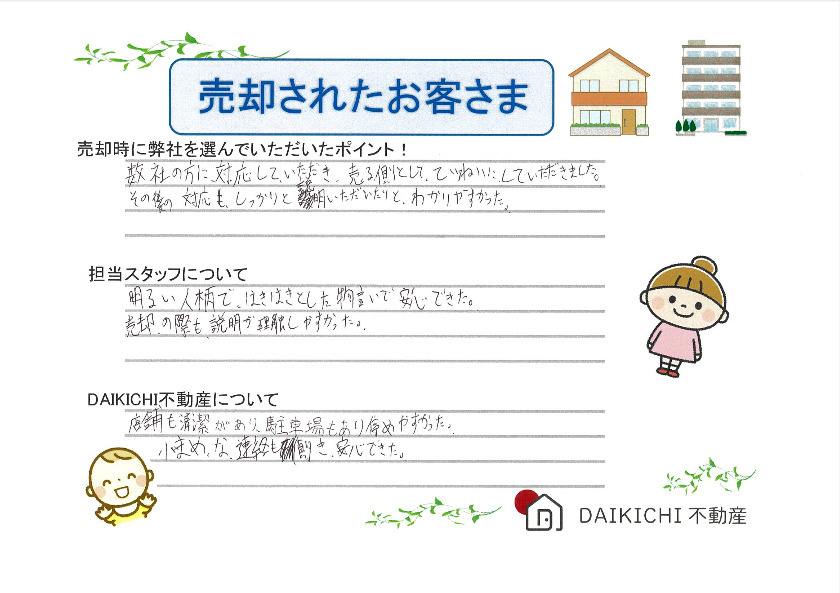 売却されたお客さま
売却時に弊社を選んでいただいたポイント！
数社の方に対応していただき、売る側として、ていねいにしていただきました。
その後の対応も、しっかりと説明いただいたりと、わかりやすかった。
担当スタッフについて
明るい人柄で、はきはきとした物言いで安心できた。
売却の際も、説明が理解しやすかった。
DAIKICHI不動産について
店舗も清潔があり、駐車場もあり停めやすかった。
小まめな、連絡も頂き、安心できた。
DAIKICHI 不動産